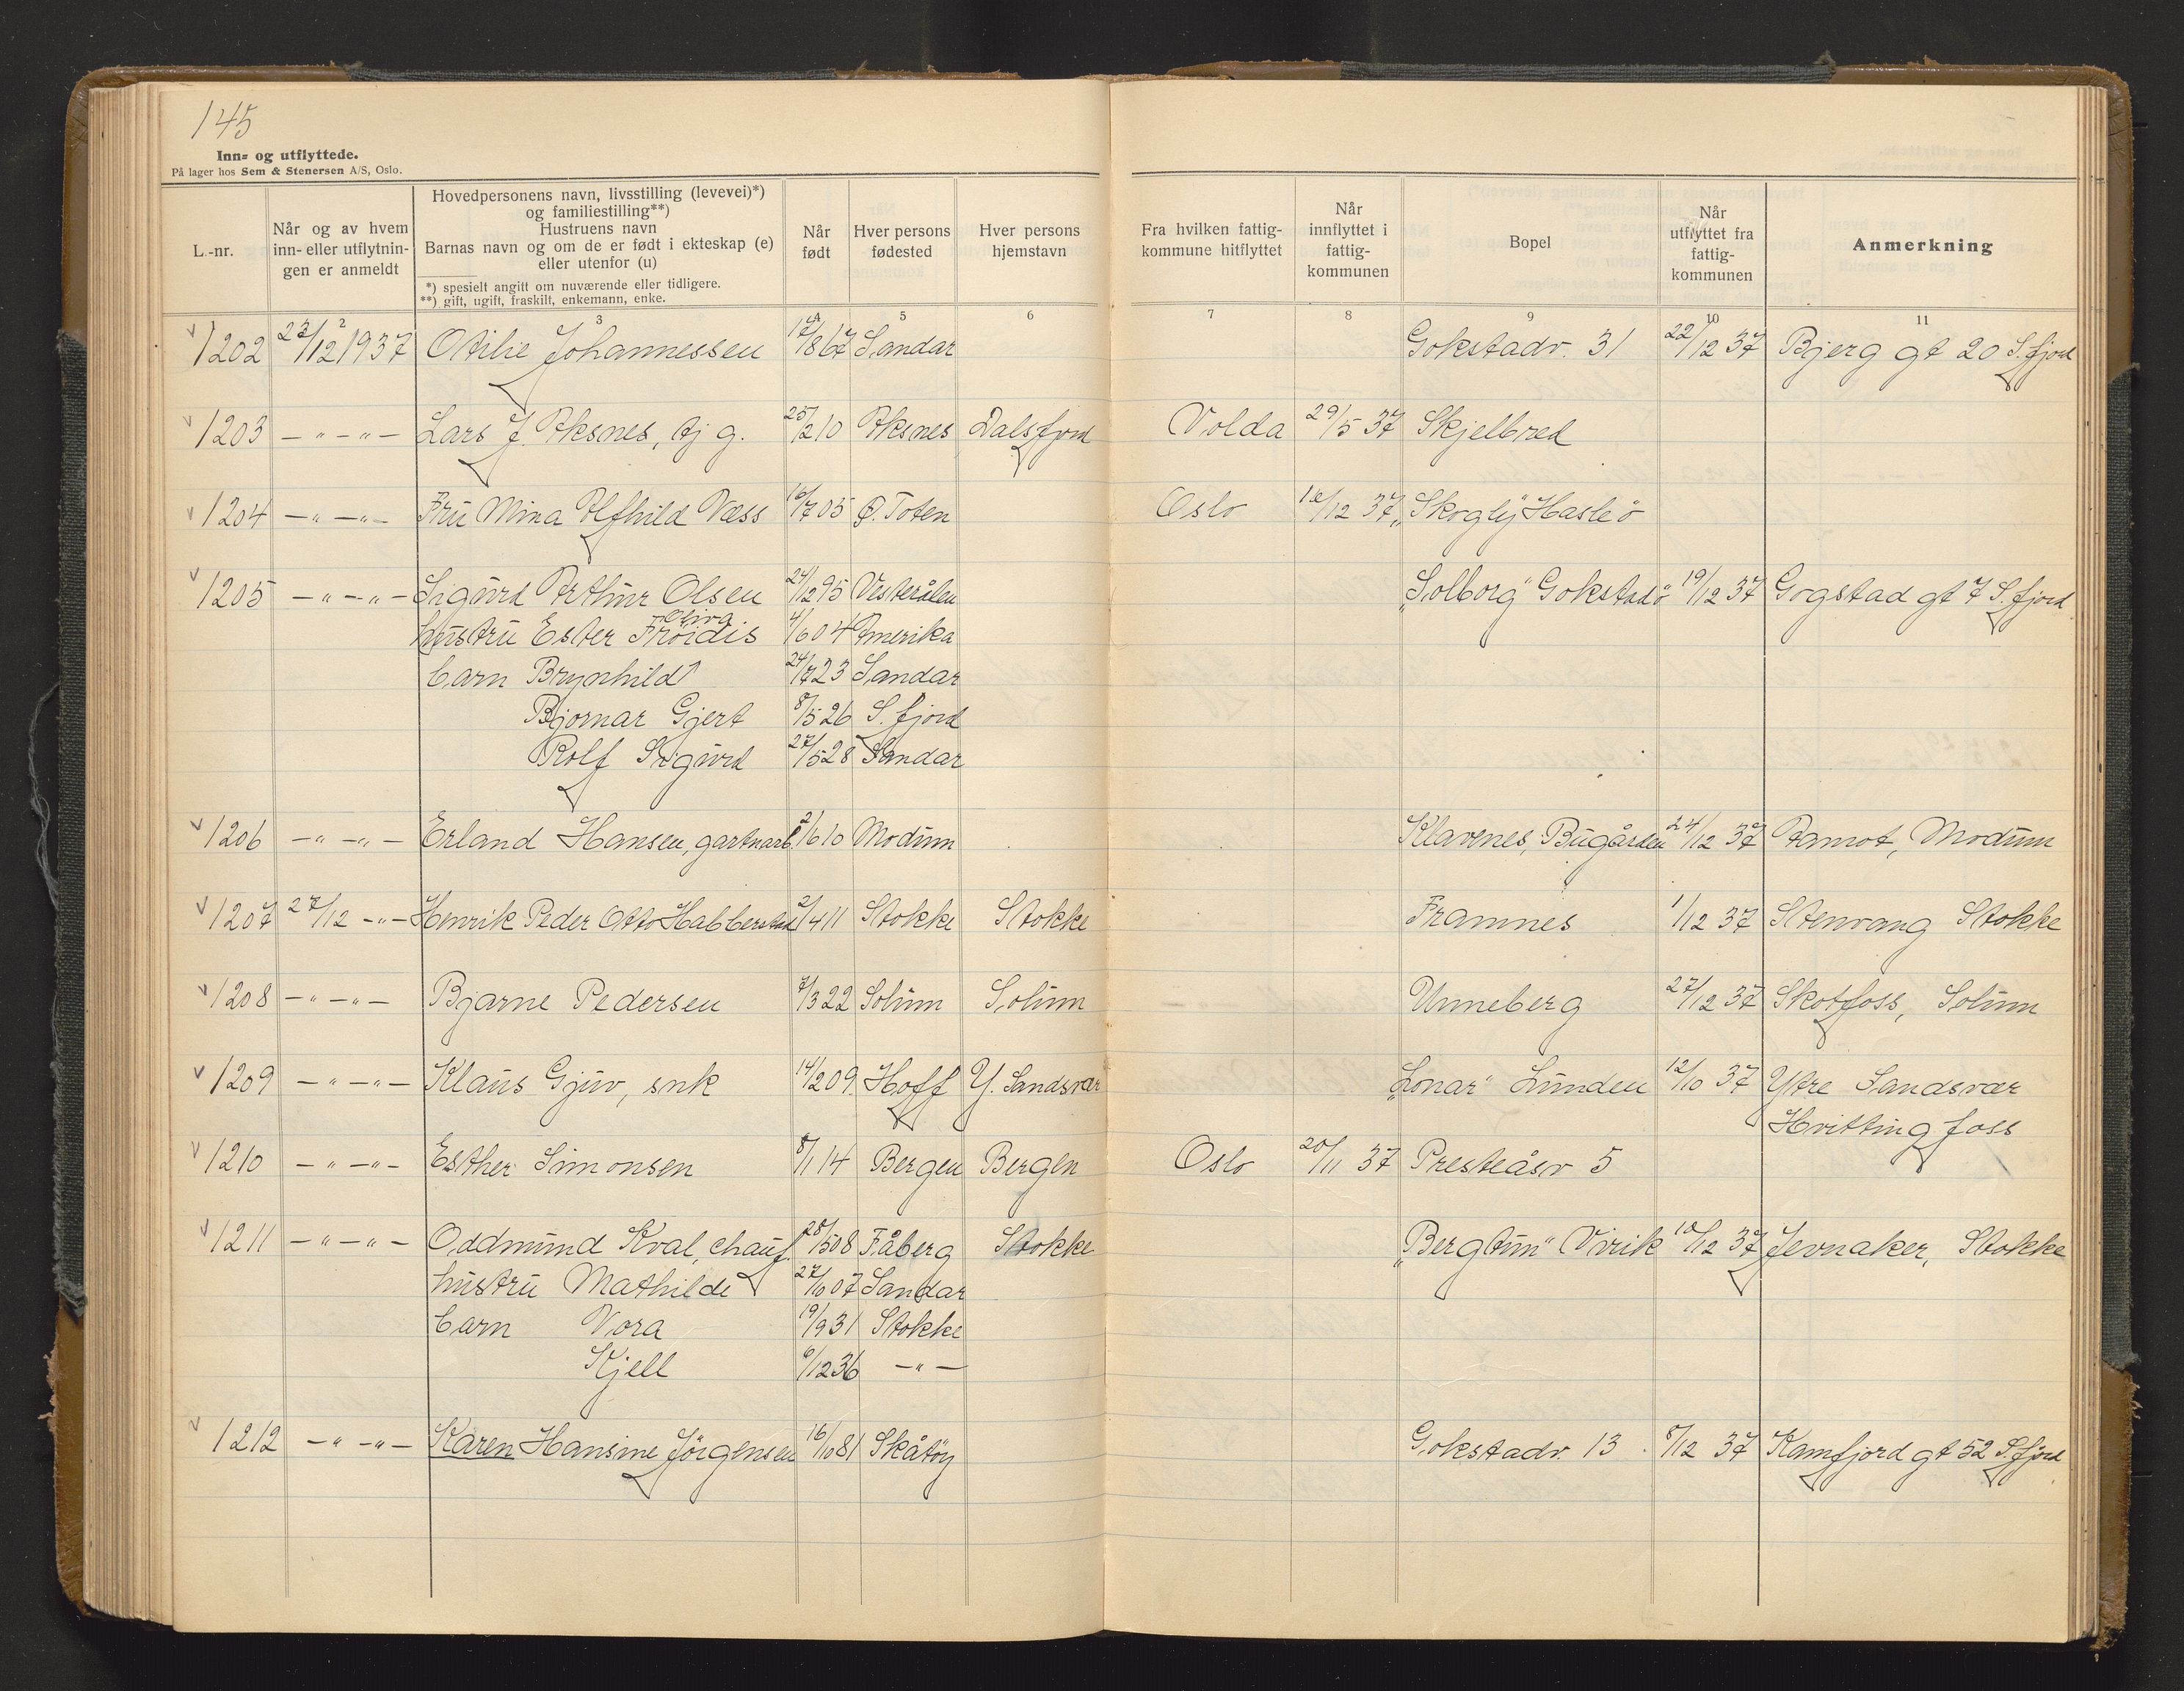 145
Inn- og utflyttede.
På lager hos Sem & Stenersen A/S, Oslo.
L.-nr.
Når og av hvem inn- eller utflytningen er anmeldt
Hovedpersonens navn, livsstilling (levevei)*)
og familiestilling**)
Hustruens navn
Barnas navn og om de er født i ekteskap (e)
eller utenfor (u)
*) spesielt angitt om nuværende eller tidligere.
**) gift, ugift, fraskilt, enkemann, enke.
Når født
Hver persons fødested
Hver persons hjemstavn
Fra hvilken fattigkommune hitflyttet
Når innflyttet i fattigkommunen
Bopel
Når utflyttet fra fattigkommunen
Anmerkning
2 3 4 5 6 7 8 9 10 11
1202 23/12 1937 Otilie Johannessen 17/8 67 Sandar Gokstadv. 31 22/12 37 Bjerg gt 20 S.fjord
1203 —„—„— Lars J. Aksnes, tj g. 25/2 10 Aksnes Dalsfjord Volda 29/5 37 Skjelbred
1204 —„—„— Fru Mina Alfhild Næss 16/7 05 Ø. Toten Oslo 12/12 37 „Skogly" Hasleö
1205 —„—„— Sigurd Arthur Olsen 24/12 95 Vesterålen „Solborg" Gokstadö 19/12 37 Gogstad gt 7 S.fjord
Oliva
hustru Ester Fröidis 4/6 04 Amerika
barn Brynhild 24/7 23 Sandar
Bjornar Gjert 8/5 26 S.fjord
Rolf Sigurd 27/5 28 Sandar
1206 —„—„— Erland Hansen, gartnarb. 2/6 10 Modum Klavenes, Bugården 24/12 37 Åmot, Modum
1207 27/12 —„— Henrik Peder Otto Habberstad 2/4 11 Stokke Stokke Framnes 1/12 37 Stenvang Stokke
1208 —„—„— Bjarne Pedersen 7/3 22 Solum Solum Unneberg 27/12 37 Skotfoss, Solum
1209 —„—„— Klaus Gjuv, snk 14/2 09 Hoff Y. Sandsvær „Lonar" Lunden 12/10 37 Ytre Sandsvær
Hvittingfoss
1210 —„—„— Esther Simonsen 8/1 14 Bergen Bergen Oslo 20/11 37 Presteåsv 5
1211 —„—„— Oddmund Kval, chauf. 28/5 08 Fåberg Stokke „Bergtun" Virik 18/12 37 Jevnaker, Stokke
hustru Mathilde 27/6 07 Sandar
barn Vora 19/9 31 Stokke
Kjell 6/12 36 —„—
1212 —„—„— Karen Hansine Jörgensen 16/10 81 Skåtöy Gokstadv. 13 8/12 37 Kamfjord gt 52 S.fjord